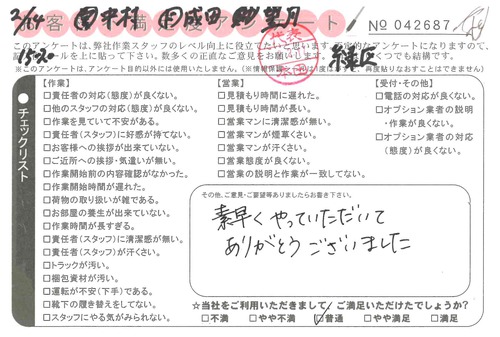 お客様満足度アンケート
2/14
中村
成田
望月
№ 042687
このアンケートは、弊社作業スタッフのレベル向上に役立てたいと思います。
アンケートになりますので、
シールを上に貼って下さい。数多くの正直なご意見をお願いします。
いくつでも結構です。
15:30
緑区
※このアンケートは、アンケート目的以外には使用いたしません。
【作業】
□責任者の対応(態度)が良くない。
□他のスタッフの対応(態度)が良くない。
□作業を見ていて不安がある。
□責任者(スタッフ)に好感が持てない。
□お客様への挨拶が出来ていない。
□ご近所への挨拶・気遣いが無い。
□作業開始前の内容確認がなかった。
□作業開始時間が遅れた。
□荷物の取り扱いが雑である。
□お部屋の養生が出来ていない。
□作業時間が長すぎる。
□責任者(スタッフ)に清潔感が無い。
□責任者(スタッフ)が汗くさい。
□トラックが汚い。
□梱包資材が汚い。
□運転が不安(下手)である。
□靴下の履き替えをしてない。
□スタッフにやる気がみられない。
【営業】
□見積もり時間に遅れた。
□見積もり時間が長い。
□営業マンに清潔感が無い。
□営業マンが煙草くさい。
□営業マンが汗くさい。
□営業態度が良くない。
□営業の説明と作業が一致してない。
【受付・その他】
□電話の対応が良くない。
□オプション業者の説明
・作業が良くない。
□オプション業者の対応
(態度)が良くない。
●チェックリスト
その他、ご意見・ご要望等ありましたらお書き下さい。
素早くやっていただいて
ありがとうございました
☆当社をご利用いただきまして、ご満足いただけたでしょうか?
□不満 □やや不満 □普通 □やや満足 □満足